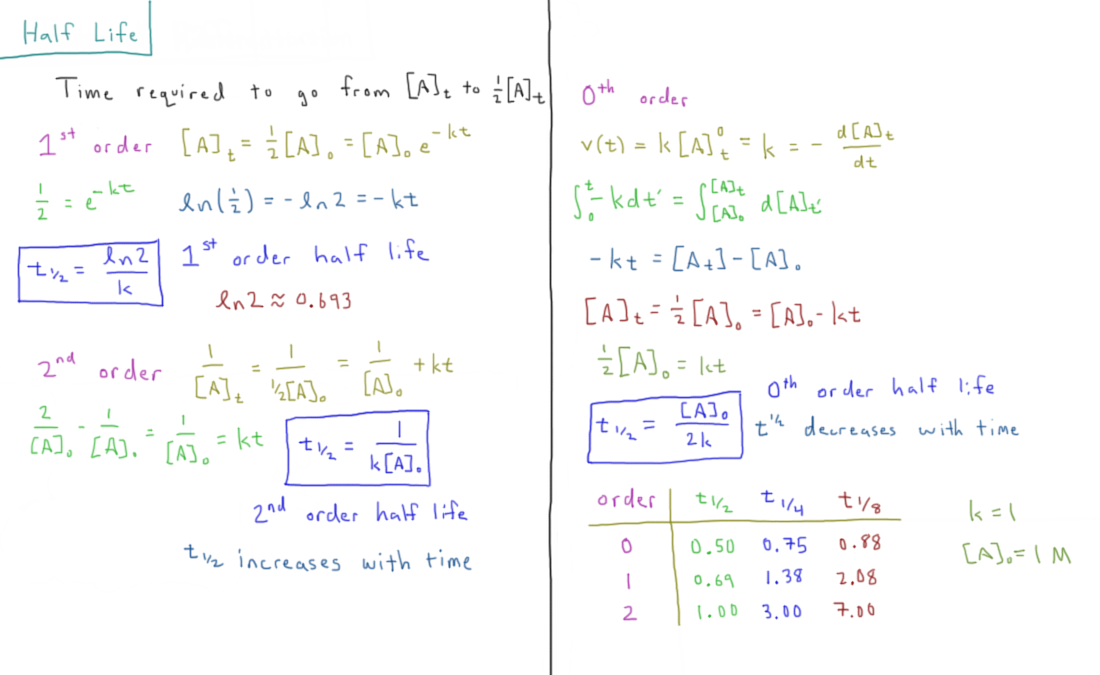 Half Life
Time required to go from [A]ₜ to ½[A]ₜ
1ˢᵗ order [A]ₜ = ½[A]₀ = [A]₀ e^(-kt)
1/2 = e^(-kt) ln(½) = - ln2 = -kt
t₁/₂ = ln2/k 1ˢᵗ order half life
ln2 ≈ 0.693
2ⁿᵈ order 1/[A]ₜ = 1/(½[A]₀) = 1/[A]₀ + kt
2/[A]₀ - 1/[A]₀ = 1/[A]₀ = kt t₁/₂ = 1/(k[A]₀)
2ⁿᵈ order half life
t₁/₂ increases with time
0ᵗʰ order
v(t) = k[A]ₜ⁰ = k = - d[A]ₜ/dt
∫₀ᵗ -kdt' = ∫_{[A]₀}^{[A]ₜ} d[A]ₜ'
-kt = [Aₜ] - [A]₀
[A]ₜ = ½[A]₀ = [A]₀ - kt
½[A]₀ = kt
t₁/₂ = [A]₀/2k 0ᵗʰ order half life
t^½ decreases with time
order t₁/₂ t₁/₄ t₁/₈
0 0.50 0.75 0.88
1 0.69 1.38 2.08
2 1.00 3.00 7.00
k = 1
[A]₀ = 1 M